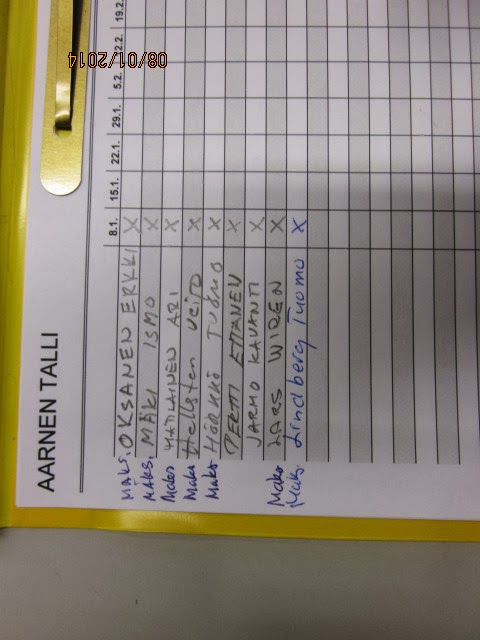 AARNEN TALLI
8.1. 15.1. 22.1. 29.1. 5.2. 2.2. 19.2.
MAKS. OKSANEN ERKKI X
MAKS. MÄKI ISMO X
Maks ARI X
Maks Hellsten Veijo X
Maks HÖRKKÖ TUOMO X
PERTTI X
JARMO KAVANTI X
Maks LARS WIREN X
Maks. Lindberg Tuomo X
08/01/2014